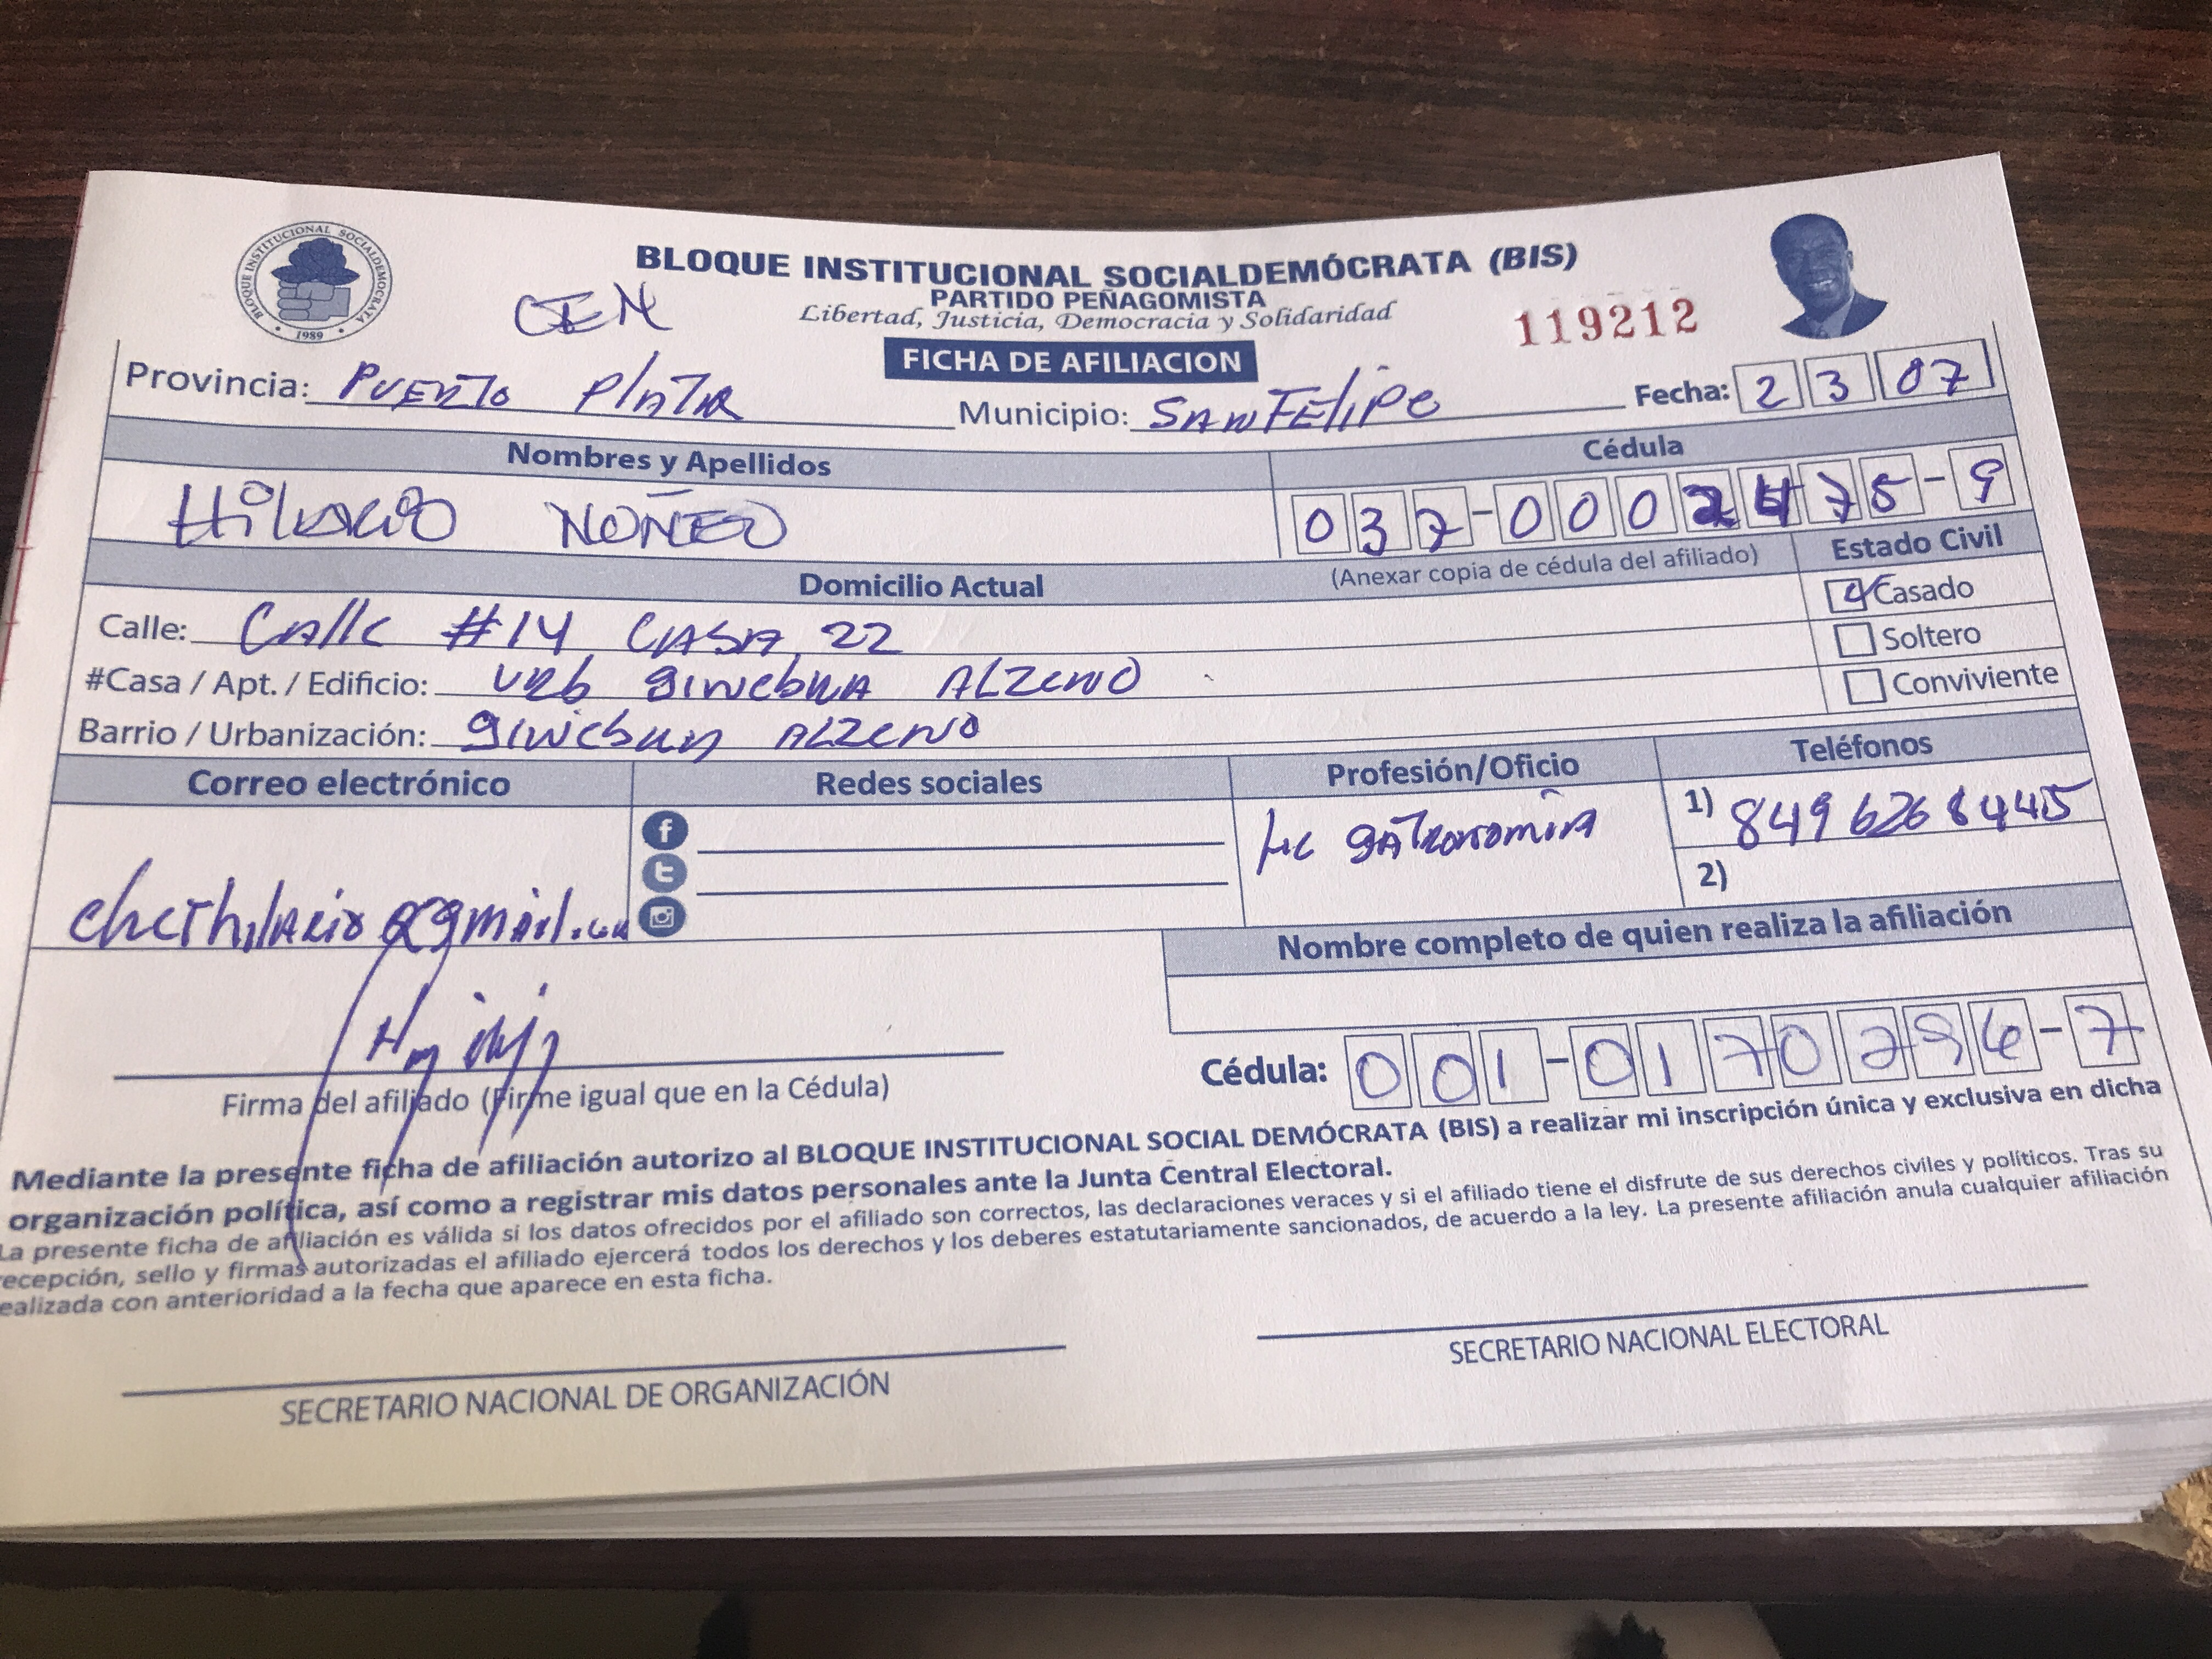 BLOQUE INSTITUCIONAL SOCIALDEMOCRATA
1989
BLOQUE INSTITUCIONAL SOCIALDEMÓCRATA (BIS)
PARTIDO PEÑAGOMISTA
Libertad, Justicia, Democracia y Solidaridad
CEN
119212
FICHA DE AFILIACION
Provincia: PUERTO PlATA Municipio: SAN FElipe Fecha: 2 3 07
Nombres y Apellidos Cédula
HilARio NOÑEO 037-0002475-9
Domicilio Actual (Anexar copia de cédula del afiliado) Estado Civil
Calle: CAlle #14 CASA 22 Casado
#Casa / Apt. / Edificio: URb giNebRA ALZeNO Soltero
Barrio / Urbanización: giNebRA ALZeNO Conviviente
Correo electrónico Redes sociales Profesión/Oficio Teléfonos
Lic gATRoNomiA 1) 849 626 8445
2)
Nombre completo de quien realiza la afiliación
Cédula: 001-0170296-7
Firma del afiliado (Firme igual que en la Cédula)
Mediante la presente ficha de afiliación autorizo al BLOQUE INSTITUCIONAL SOCIAL DEMÓCRATA (BIS) a realizar mi inscripción única y exclusiva en dicha
organización política, así como a registrar mis datos personales ante la Junta Central Electoral.
La presente ficha de afiliación es válida si los datos ofrecidos por el afiliado son correctos, las declaraciones veraces y si el afiliado tiene el disfrute de sus derechos civiles y políticos. Tras su
recepción, sello y firmas autorizadas el afiliado ejercerá todos los derechos y los deberes estatutariamente sancionados, de acuerdo a la ley. La presente afiliación anula cualquier afiliación
ealizada con anterioridad a la fecha que aparece en esta ficha.
SECRETARIO NACIONAL DE ORGANIZACIÓN SECRETARIO NACIONAL ELECTORAL